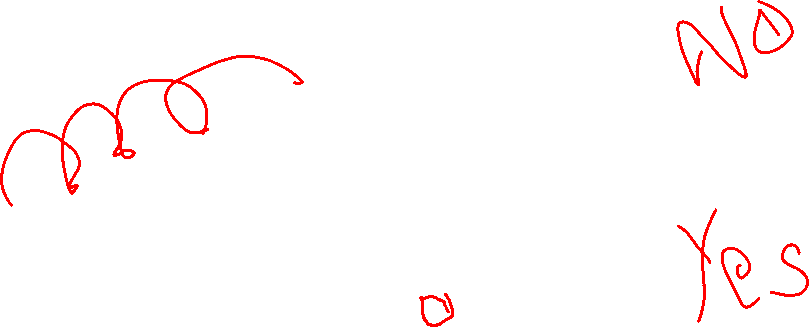 NO
Yes